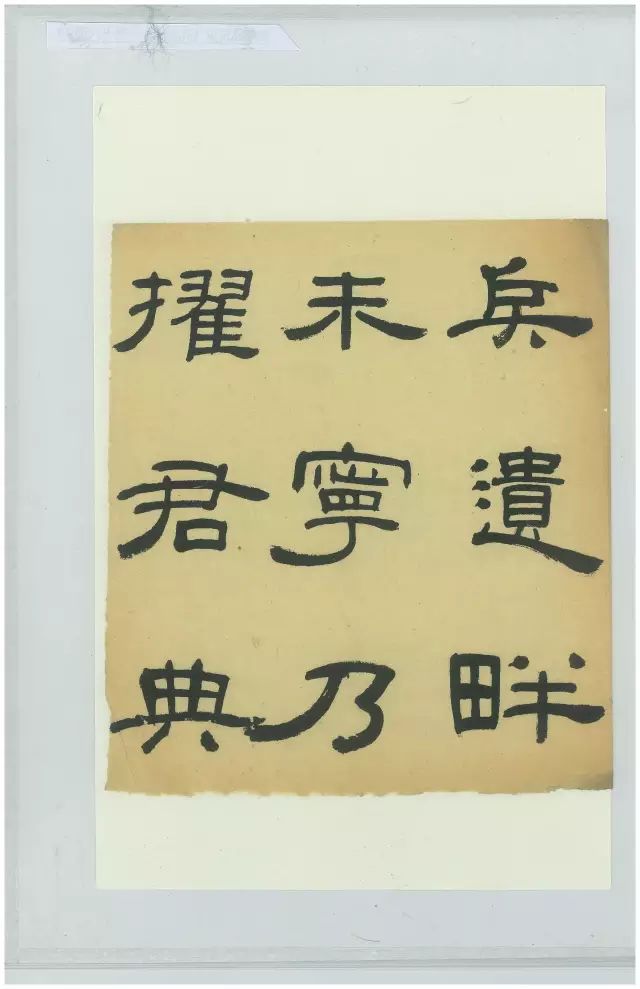 兵遺畔
未寧乃
擢君典